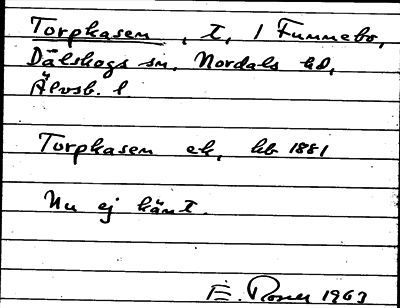 Torpkasen, t, 1 Funnebo,
Dalskogs sn, Nordals hd,
Älvsb. l.
Torpkasen ek, hb 1881
Nu ej känt.
E. 1963